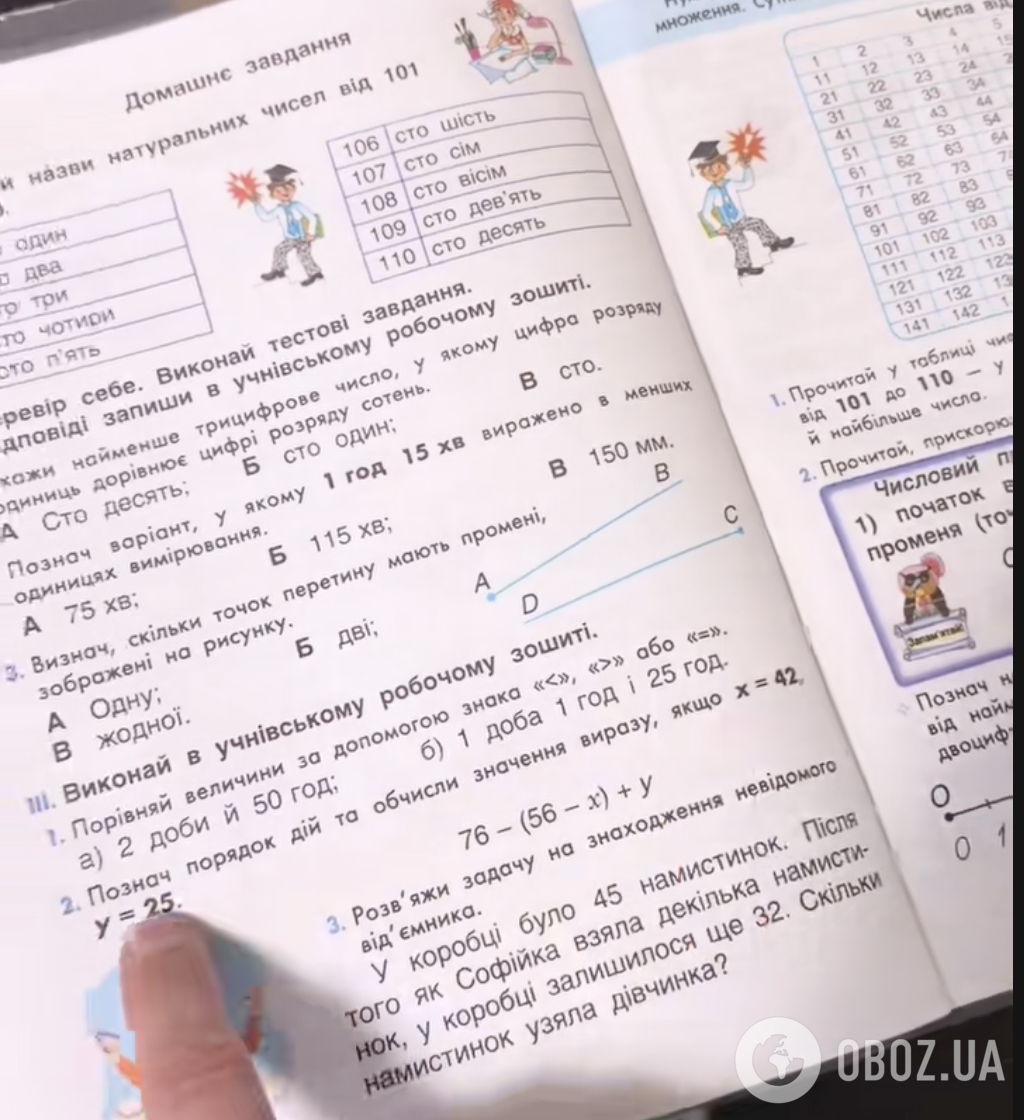 Домашнє завдання
назви натуральних чисел від 101
один
два
три
чотири
сто п'ять
106 сто шість
107 сто сім
108 сто вісім
109 сто дев'ять
110 сто десять
себе. Виконай тестові завдання.
запиши в учнівському робочому зошиті.
найменше трицифрове число, у якому цифра розряду
одиниць дорівнює цифрі розряду сотень.
А Сто десять; Б сто один; В сто.
Познач варіант, у якому 1 год 15 хв виражено в менших
одиницях вимірювання.
А 75 хв; Б 115 хв; В 150 мм.
3. Визнач, скільки точок перетину мають промені,
зображені на рисунку.
А Одну; Б дві;
В жодної.
A B
D C
III. Виконай в учнівському робочому зошиті.
1. Порівняй величини за допомогою знака «<», «>» або «=».
а) 2 доби й 50 год; б) 1 доба 1 год і 25 год.
2. Познач порядок дій та обчисли значення виразу, якщо x = 42,
y = 25.
76 – (56 – x) + y
3. Розв'яжи задачу на знаходження невідомого
від'ємника.
У коробці було 45 намистинок. Після
того як Софійка взяла декілька намисти-
нок, у коробці залишилося ще 32. Скільки
намистинок узяла дівчинка?
множення.
Числа від
1 2 3 4 5
11 12 13 14
21 22 23 24
31 32 33 34
41 42 43 44
51 52 53 54
61 62 63 64
71 72 73
81 82 83
91 92 93
101 102 103
111 112 113
121 122 123
131 132
141 142
1. Прочитай у таблиці
від 101 до 110 – у
й найбільше число.
2. Прочитай,
Числовий
1) початок
променя
Запам'ятай!
Познач
від
O
0 1
OBOZ.UA